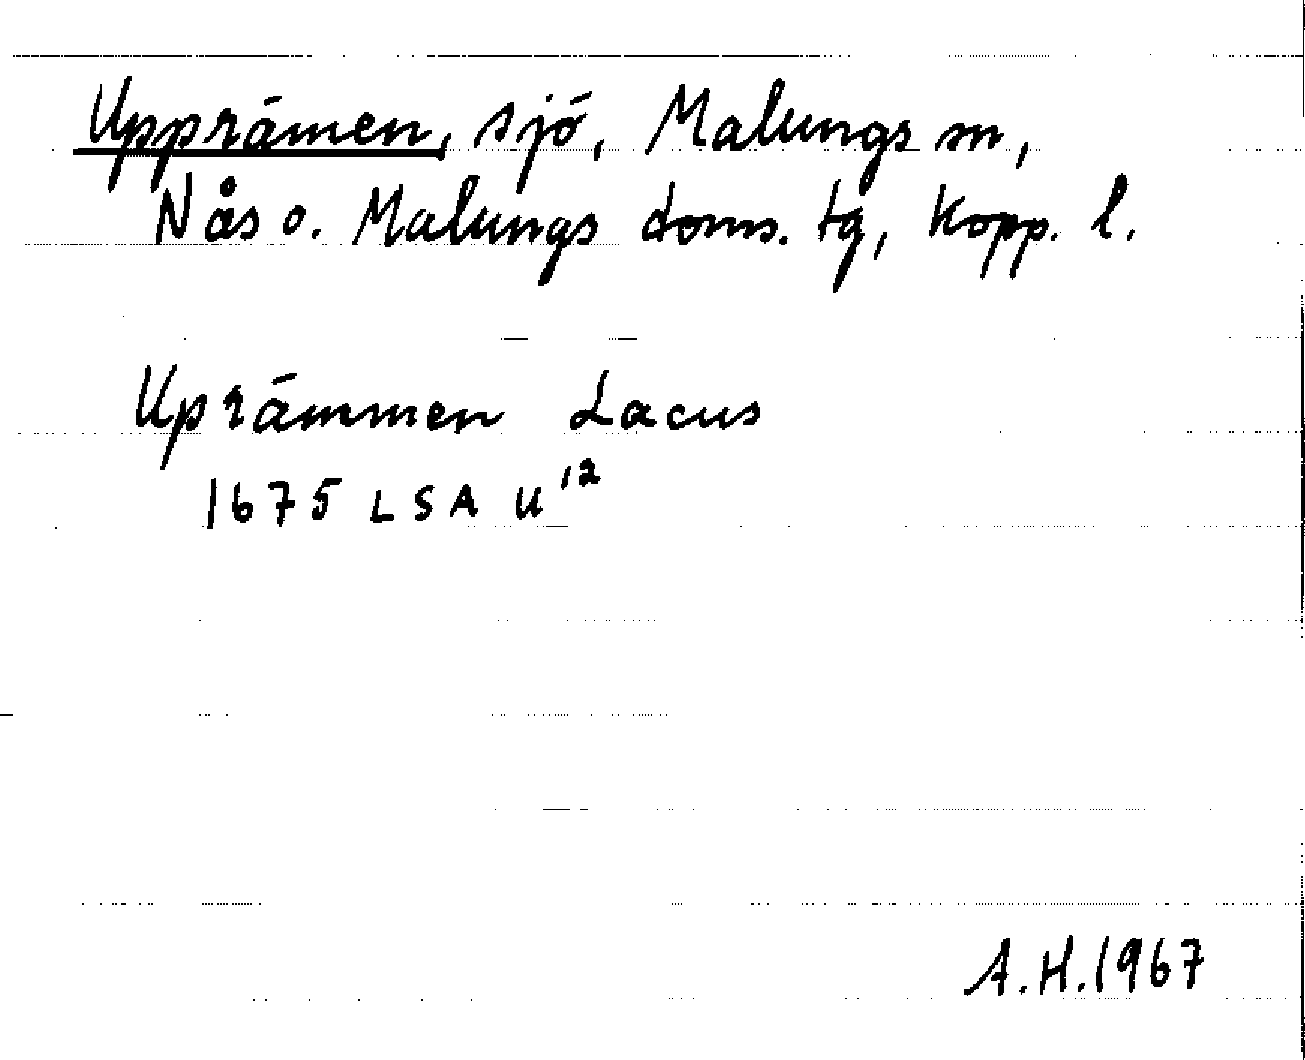 Upprämen, sjö, Malungs sn,
Nås o. Malungs doms. tg, Kopp. l.
Uprämmen Lacus
1675 LSA U 12
A.H. 1967